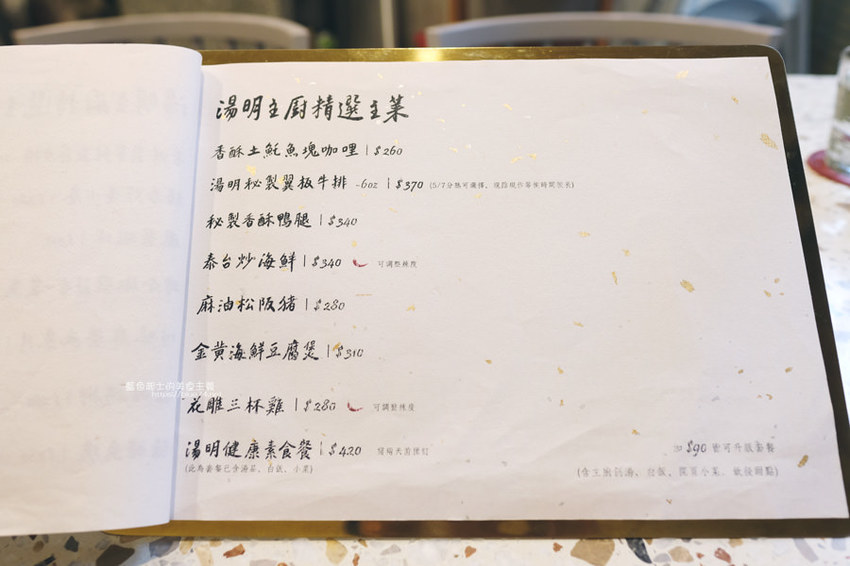 湯明主廚精選主菜
香酥土魠魚塊咖哩 | $260
湯明秘製翼板牛排 -6oz | $370 (5/7分熟可選擇，現點現作等候時間較長)
秘製香酥鴨腿 | $340
泰台炒海鮮 | $340 可調整辣度
麻油松阪豬 | $280
金黃海鮮豆腐煲 | $310
花雕三杯雞 | $280 可調整辣度
湯明健康素食餐 | $420 需每天前預訂
(此為套餐已含湯品、白飯、小菜)
加 $90 即可升級套餐
(含主廚例湯、白飯、開胃小菜、飯後甜點)
藍色起士的美食主義